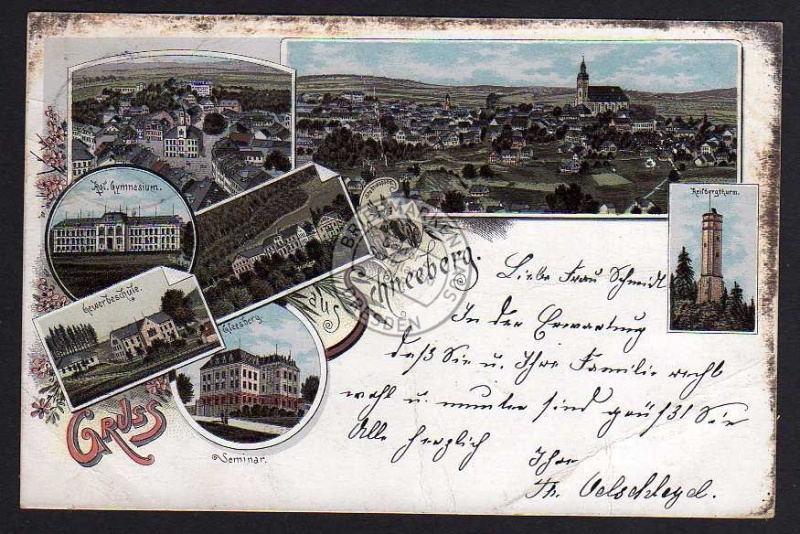 Kgl. Gymnasium.
Keilbergthurm.
Gewerbeschule.
Gleesberg.
Seminar.
GRUSS
aus
Schneeberg.
Liebe Frau Schmidt
In der Erwartung
daß Sie u. Ihre Familie recht
wohl u. munter sind grüßt Sie
Alle herzlich Ihre
Th. Oelschlegel.
BRIEFMARKENHAUS
DRESDEN